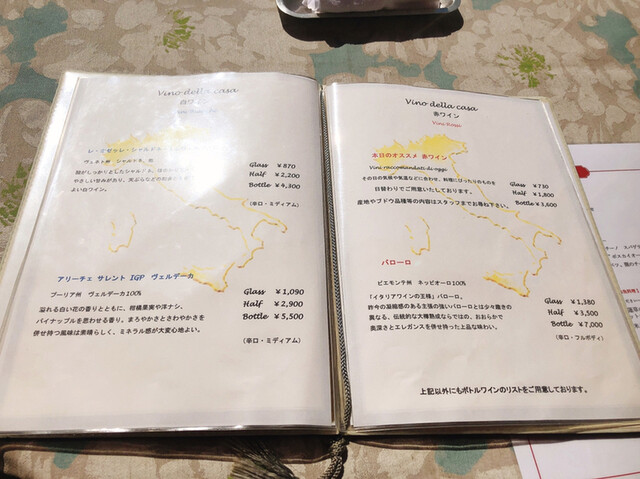 Vino della casa
白ワイン
Glass ¥870
Half ¥2,200
Bottle ¥4,300
(辛口・ミディアム)
アリーチェ サレント IGP ヴェルデーカ
プーリア州 ヴェルデーカ100%
Glass ¥1,090
Half ¥2,900
Bottle ¥5,500
溢れる白い花の香りとともに、柑橘果実や洋ナシ、
パイナップルを思わせる香り。まろやかさとさわやかさを
併せ持つ風味は素晴らしく、ミネラル感が大変心地よい。
(辛口・ミディアム)
Vino della casa
赤ワイン
Vino Rosso
本日のオススメ 赤ワイン
Vini raccomandati di oggi
その日の気候や気温などに合わせ、料理にぴったりのものを
日替わりでご用意いたしております。
産地やブドウ品種等の内容はスタッフまでお尋ね下さい。
Glass ¥730
Half ¥1,800
Bottle ¥3,600
バローロ
ピエモンテ州 ネッビオーロ100%
「イタリアワインの王様」バローロ。
許々の凝縮感のある主張の強いバローロとは少々趣きの
異なる、伝統的な大樽熟成ならではの、おおらかで
奥深さとエレガンスを併せ持った上品な味わい。
Glass ¥1,380
Half ¥3,500
Bottle ¥7,000
(辛口・フルボディ)
上記以外にもボトルワインのリストをご用意しております。